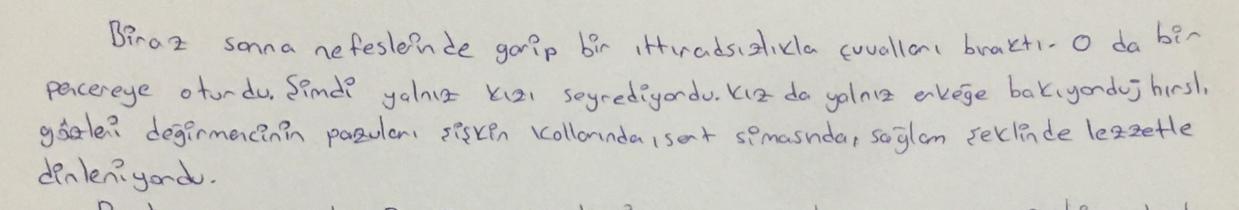 Biraz sonra nefeslerinde garip bir ıttıradsızlıkla çuvalları bıraktı. O da bir
pencereye oturdu. Şimdi yalnız kızı seyrediyordu. Kız da yalnız erkeğe bakıyordu; hırslı
gözleri değirmencinin pazuları şişkin kollarında, sert simasında, sağlam şeklinde lezzetle
dinleniyordu.